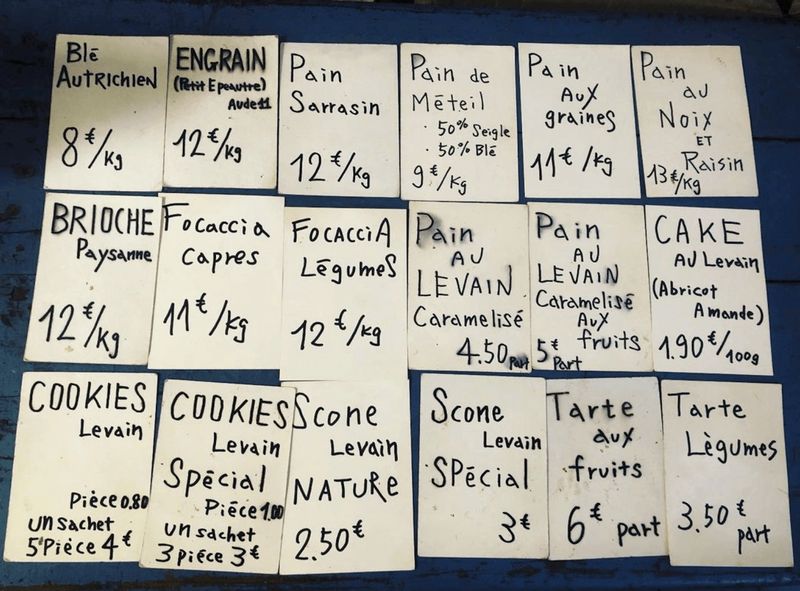 Blé
Autrichien
8€/kg
ENGRAIN
(Petit Epeautre)
Aude 11
12€/kg
Pain
Sarrasin
12€/kg
Pain de
Méteil
· 50% Seigle
· 50% Blé
9€/kg
Pain
Aux
graines
11€/kg
Pain
au
Noix
ET
Raisin
13€/kg
BRIOCHE
Paysanne
12€/kg
Focaccia
Capres
11€/kg
FOCACCIA
LégumeS
12€/kg
Pain
AU
LEVAIN
Caramelisé
4.50 part
Pain
AU
LEVAIN
Caramelisé
Aux
fruits
5€ Part
CAKE
AU Levain
(Abricot
Amande)
1.90€/100g
COOKIES
Levain
Pièce 0.80
un sachet
5 Pièce 4€
COOKIES
Levain
Spécial
Piéce 1.00
un sachet
3 piéce 3€
Scone
Levain
NATURE
2.50€
Scone
Levain
SPécial
3€
Tarte
aux
fruits
6€ part
Tarte
Lègumes
3.50€
part